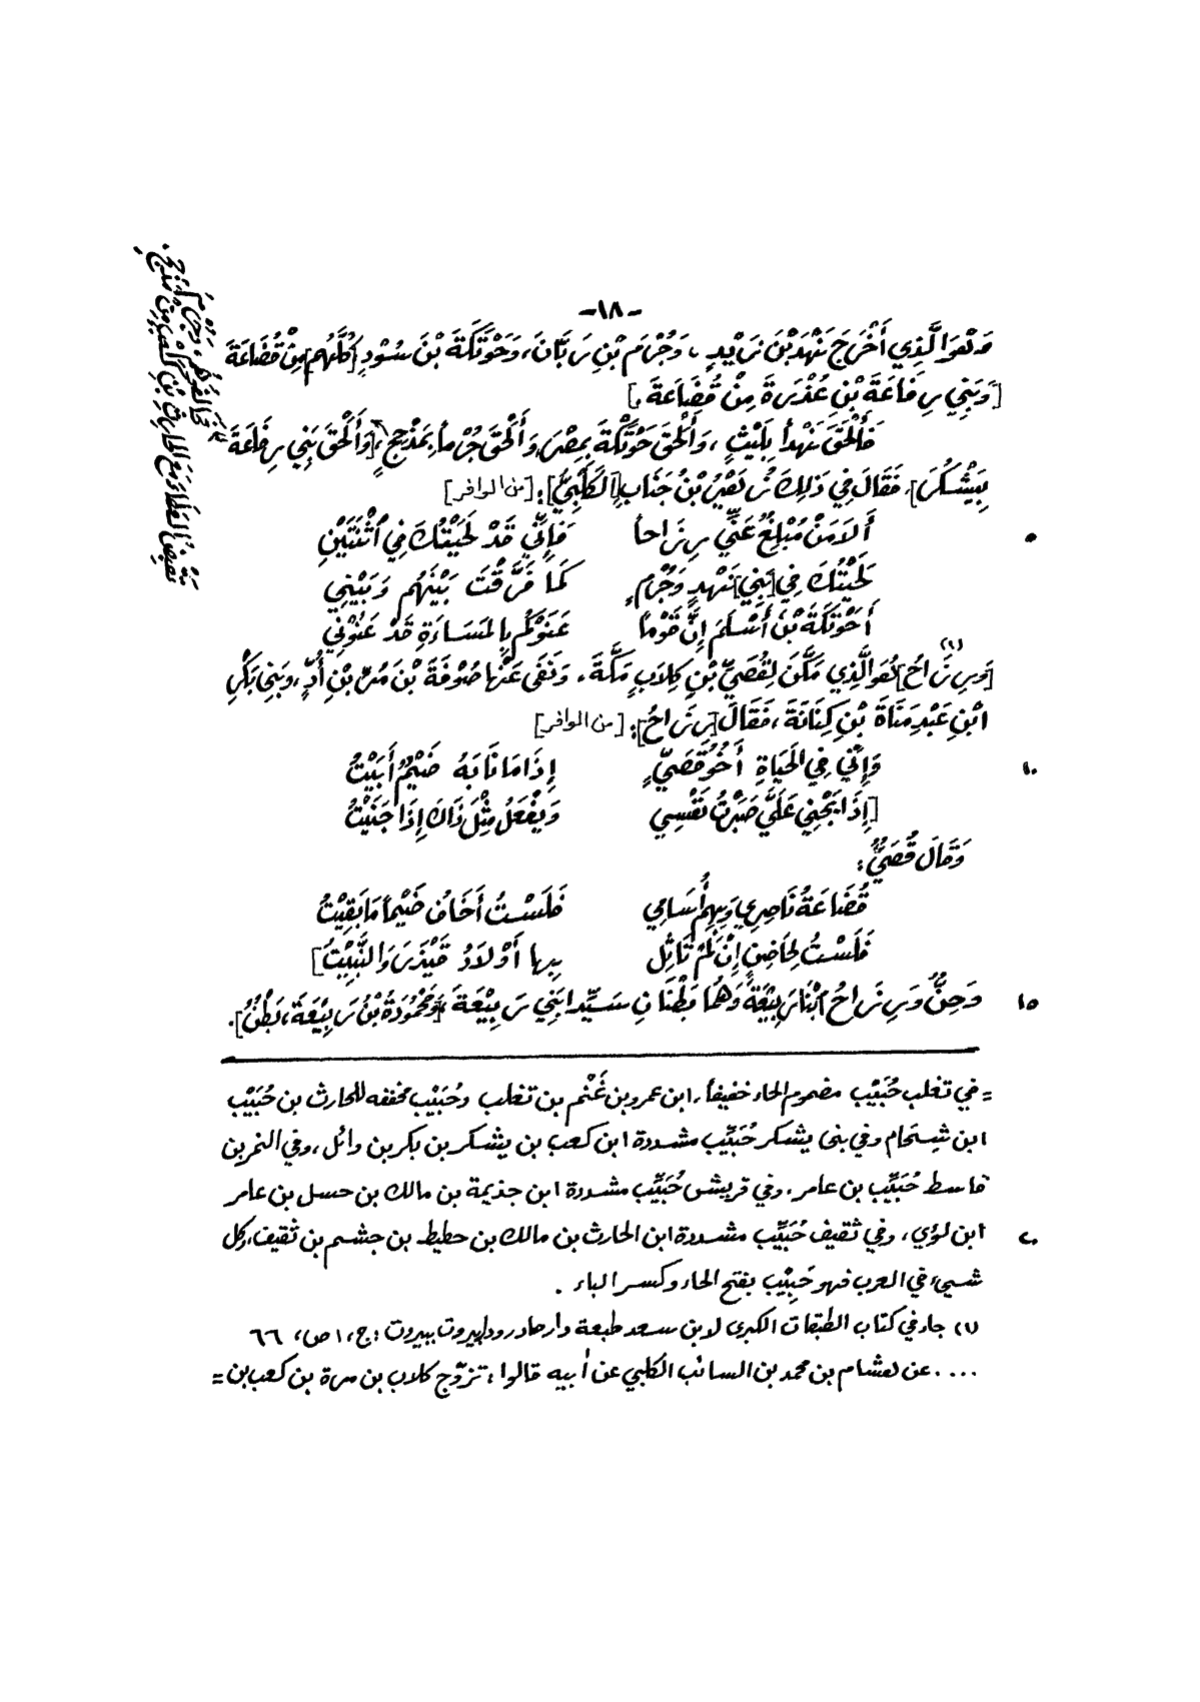 -١٨-
وَهُوَ الَّذِي أَخْرَجَ نَهْدَ بْنَ زَيْدٍ، وَجُرْمَ بْنِ رَبَّانَ، وَحَوْتَكَةَ بْنَ سُوْدٍ [كُلَّهُم] مِنْ قُضَاعَةَ
[وَبَنِي رِفَاعَةَ بْنِ عُذْرَةَ مِنْ قُضَاعَةَ.]
فَأَلْحَقَ نَهْداً بِلَيْثٍ، وَأَلْحَقَ حَوْتَكَةَ بِمِصْرَ، وَأَلْحَقَ جُرْماً بِمَذْحِجٍ، [وَأَلْحَقَ بَنِي رِفَاعَةَ
بِيَشْكُرَ]، فَقَالَ فِي ذَلِكَ زُهَيْرُ بْنُ جَنَابٍ [الكَلْبِيُّ]: [من الوافر]
٥ أَلاَ مَنْ مُبْلِغٌ عَنِّي رِزَاحاً فَإِنِّي قَدْ لَحَيْتُكَ فِي اثْنَتَيْنِ
لَحَيْتُكَ فِي [بَنِي] نَهْدٍ وَجُرْمٍ كَمَا فَرَّقْتَ بَيْنَهُم وَبَيْنِي
أَحَوْتَكَةَ بْنَ أَسْلَمَ إِنَّ قَوْماً عَنَوْكُم بِالمَسَاءَةِ قَدْ عَنَوْنِي
[وَرِزَاحُ](١) هُوَ الَّذِي مَكَّنَ لِقُصَيِّ بْنِ كِلاَبٍ مَكَّةَ، وَنَفَى عَنْهَا صُوْفَةَ بْنَ مُرِّ بْنِ أُدٍّ، وَبَنِي بَكْرِ
ابْنِ عَبْدِ مَنَاةَ بْنِ كِنَانَةَ، فَقَالَ [رِزَاحُ]: [من الوافر]
١٠ وَإِنِّي فِي الحَيَاةِ أَخُو قُصَيٍّ إِذَا مَا نَابَهُ ضَيْمٌ أَبَيْتُ
[إِذَا يَجْنِي عَلَيَّ صَبَرْتُ نَفْسِي وَيَفْعَلُ مِثْلَ ذَاكَ إِذَا جَنَيْتُ
وَقَالَ قُصَيٌّ:
قُضَاعَةُ نَاصِرِي وَبِهِم أُسَامِي فَلَسْتُ أَخَافُ ضَيْماً مَا بَقِيْتُ
فَلَسْتُ لِحَاضِنٍ إِنْ لَمْ تَأَثِّل بِها أَوْلاَدُ قَيْذَرَ وَالنَّبِيْتُ]
١٥ وَحِنٌّ وَرِزَاحُ ابْنَا رَبِيْعَةَ وَهُمَا بَطْنَانِ سَيِّدا بَنِي رَبِيْعَةَ، [وَمَحْمُودَةُ بْنُ رَبِيْعَةَ، بَطْنٌ].
= في تغلب حُبَيْب مضموم الحاء خفيفاً، ابن عمرو بن غَنْم بن تغلب وحُبَيْب مخففه للحارث بن حُبَيْب
ابن شِحَام وفي بنى يشكر حُبَيِّب مشددة ابن كعب بن يشكر بن بكر بن وائل، وفي النمر بن
قاسط حُبَيِّب بن عامر، وفي قريش حُبَيِّب مشددة ابن جذيمة بن مالك بن حسل بن عامر
٢٠ ابن لؤي، وفي ثقيف حُبَيِّب مشددة ابن الحارث بن مالك بن حطيط بن جشم بن ثقيف، وكل
شيء في العرب فهو حَبِيْب بفتح الحاء وكسر الباء.
(١) جاء في كتاب الطبقات الكبرى لابن سعد طبعة دار صادر ودار بيروت ببيروت: ج، ١ ص، ٦٦
.... عن هشام بن محمد بن السائب الكلبي عن أبيه قالوا: تزوّج كلاب بن مرة بن كعب بن =